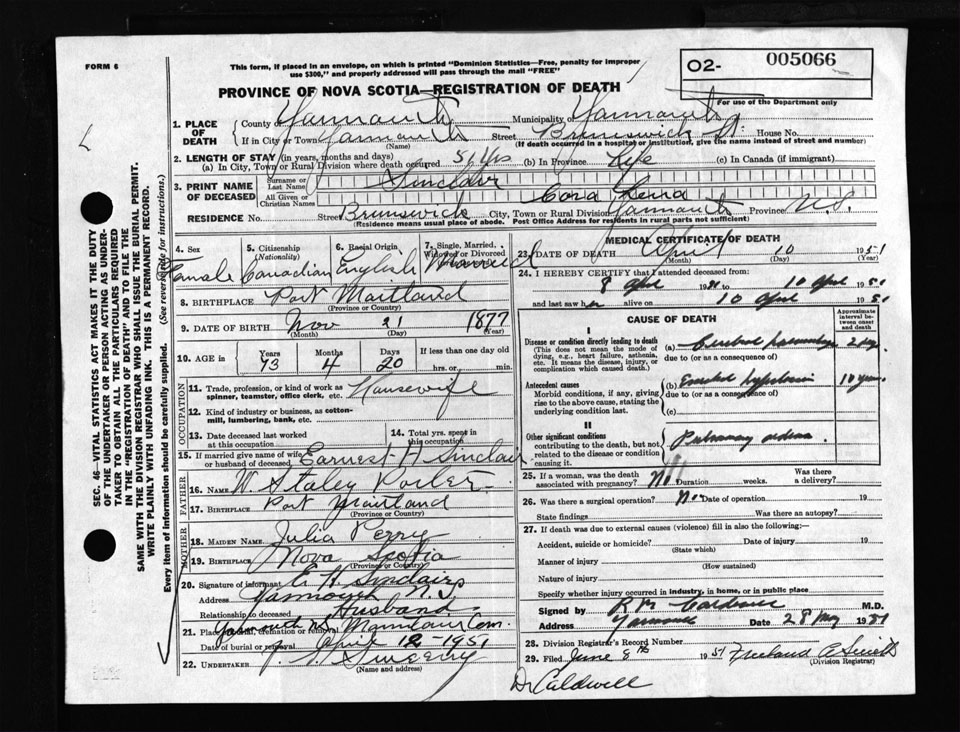 FORM 6
This form, if placed in an envelope, on which is printed "Dominion Statistics—Free, penalty for improper
use $300," and properly addressed will pass through the mail "FREE"
O2- 005066
For use of the Department only
PROVINCE OF NOVA SCOTIA—REGISTRATION OF DEATH
1. PLACE OF DEATH
County of Yarmouth Municipality of Yarmouth
If in City or Town Yarmouth Street Brunswick St. House No.
(Name) (If death occurred in a hospital or institution, give the name instead of street and number)
2. LENGTH OF STAY (in years, months and days)
(a) In City, Town or Rural Division where death occurred 54 yrs (b) In Province Life (c) In Canada (if immigrant)
3. PRINT NAME OF DECEASED
Surname or Last Name Sinclair
All Given or Christian Names Cora Lena
RESIDENCE No. Street Brunswick City, Town or Rural Division Yarmouth Province N.S.
(Residence means usual place of abode. Post Office Address for residents in rural parts not sufficient)
4. Sex 5. Citizenship (Nationality) 6. Racial Origin 7. Single, Married, Widowed or Divorced
Female Canadian English Married
8. BIRTHPLACE Port Maitland
(Province or Country)
9. DATE OF BIRTH Nov 21 1877
(Month) (Day)
10. AGE in Years Months Days If less than one day old
73 4 20 hrs. or min.
OCCUPATION
11. Trade, profession, or kind of work as
spinner, teamster, office clerk, etc. Housewife
12. Kind of industry or business, as cotton-
mill, lumbering, bank, etc.
13. Date deceased last worked at this occupation
14. Total yrs. spent in this occupation
15. If married give name of wife or husband of deceased Earnest H Sinclair
FATHER
16. NAME W. Staley Porter
17. BIRTHPLACE Port Maitland
(Province or Country)
MOTHER
18. MAIDEN NAME Julia Perry
19. BIRTHPLACE Nova Scotia
(Province or Country)
20. Signature of informant E. H. Sinclair
Address Yarmouth N.S.
Relationship to deceased Husband
21. Place of burial, cremation or removal Mountain Cem.
Date of burial or removal April 12-1951
22. UNDERTAKER
(Name and address)
MEDICAL CERTIFICATE OF DEATH
23. DATE OF DEATH April 10 1951
(Month) (Day)
24. I HEREBY CERTIFY that I attended deceased from:
8 April 1951 to 10 April 1951
and last saw her alive on 10 April 1951
CAUSE OF DEATH
Approximate interval between onset and death
I
Disease or condition directly leading to death
(This does not mean the mode of
dying, e.g., heart failure, asthenia,
etc. It means the disease, injury, or
complication which caused death.)
(a) Cerebral haemorrhage 2 days
due to (or as a consequence of)
Antecedent causes
Morbid conditions, if any, giving
rise to the above cause, stating the
underlying condition last.
(b) Essential hypertension 10 years
due to (or as a consequence of)
(c)
II
Other significant conditions
contributing to the death, but not
related to the disease or condition
causing it.
Pulmonary oedema
25. If a woman, was the death associated with pregnancy? No Duration weeks. Was there a delivery?
26. Was there a surgical operation? No Date of operation 19
State findings Was there an autopsy?
27. If death was due to external causes (violence) fill in also the following:
Accident, suicide or homicide? Date of injury 19
(State which)
Manner of injury
(How sustained)
Nature of injury
Specify whether injury occurred in industry, in home, or in public place
Signed by R M Caldwell M.D.
Address Yarmouth Date 28 May 1951
28. Division Registrar's Record Number
29. Filed June 8th 1951 Freeland A Smith
(Division Registrar)
Dr Caldwell
SEC. 46—VITAL STATISTICS ACT MAKES IT THE DUTY
OF THE UNDERTAKER OR PERSON ACTING AS UNDER-
TAKER TO OBTAIN ALL THE PARTICULARS REQUIRED
IN THE "REGISTRATION OF DEATH" AND TO FILE THE
SAME WITH THE DIVISION REGISTRAR WHO SHALL ISSUE THE BURIAL PERMIT.
WRITE PLAINLY WITH UNFADING INK. THIS IS A PERMANENT RECORD.
Every item of Information should be carefully supplied. (See reverse side for instructions.)